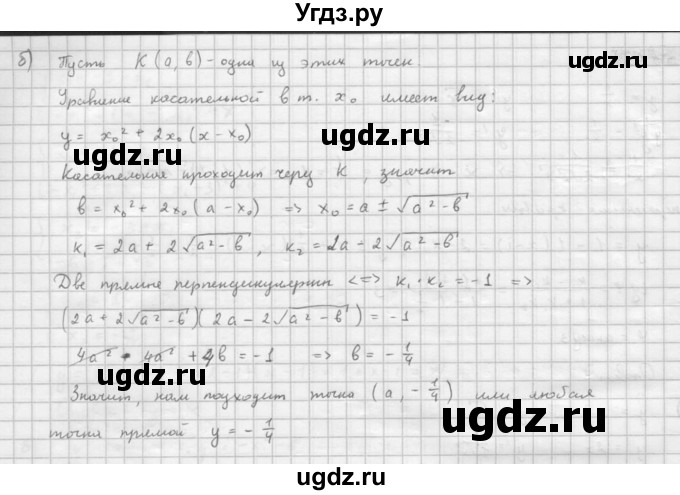 Угдз.ру
б) Пусть K(a, в) - одна из этих точек.
Уравнение касательной в т. x₀ имеет вид:
y = x₀² + 2x₀(x - x₀)
ugdz.ru ugdz.ru
Касательная проходит через K, значит
в = x₀² + 2x₀(a - x₀) => x₀ = a ± √(a² - в)
ugdz.ru ugdz.ru
k₁ = 2a + 2√(a² - в), k₂ = 2a - 2√(a² - в)
Две прямые перпендикулярны <=> k₁ · k₂ = -1 =>
ugdz.ru ugdz.ru
(2a + 2√(a² - в))(2a - 2√(a² - в)) = -1
4a² - 4a² + 4в = -1 => в = -1/4
ugdz.ru ugdz.ru
Значит, нам подходит точка (a, -1/4) или любая
точка прямой y = -1/4
ugdz.ru ugdz.ru
ugdz.ru